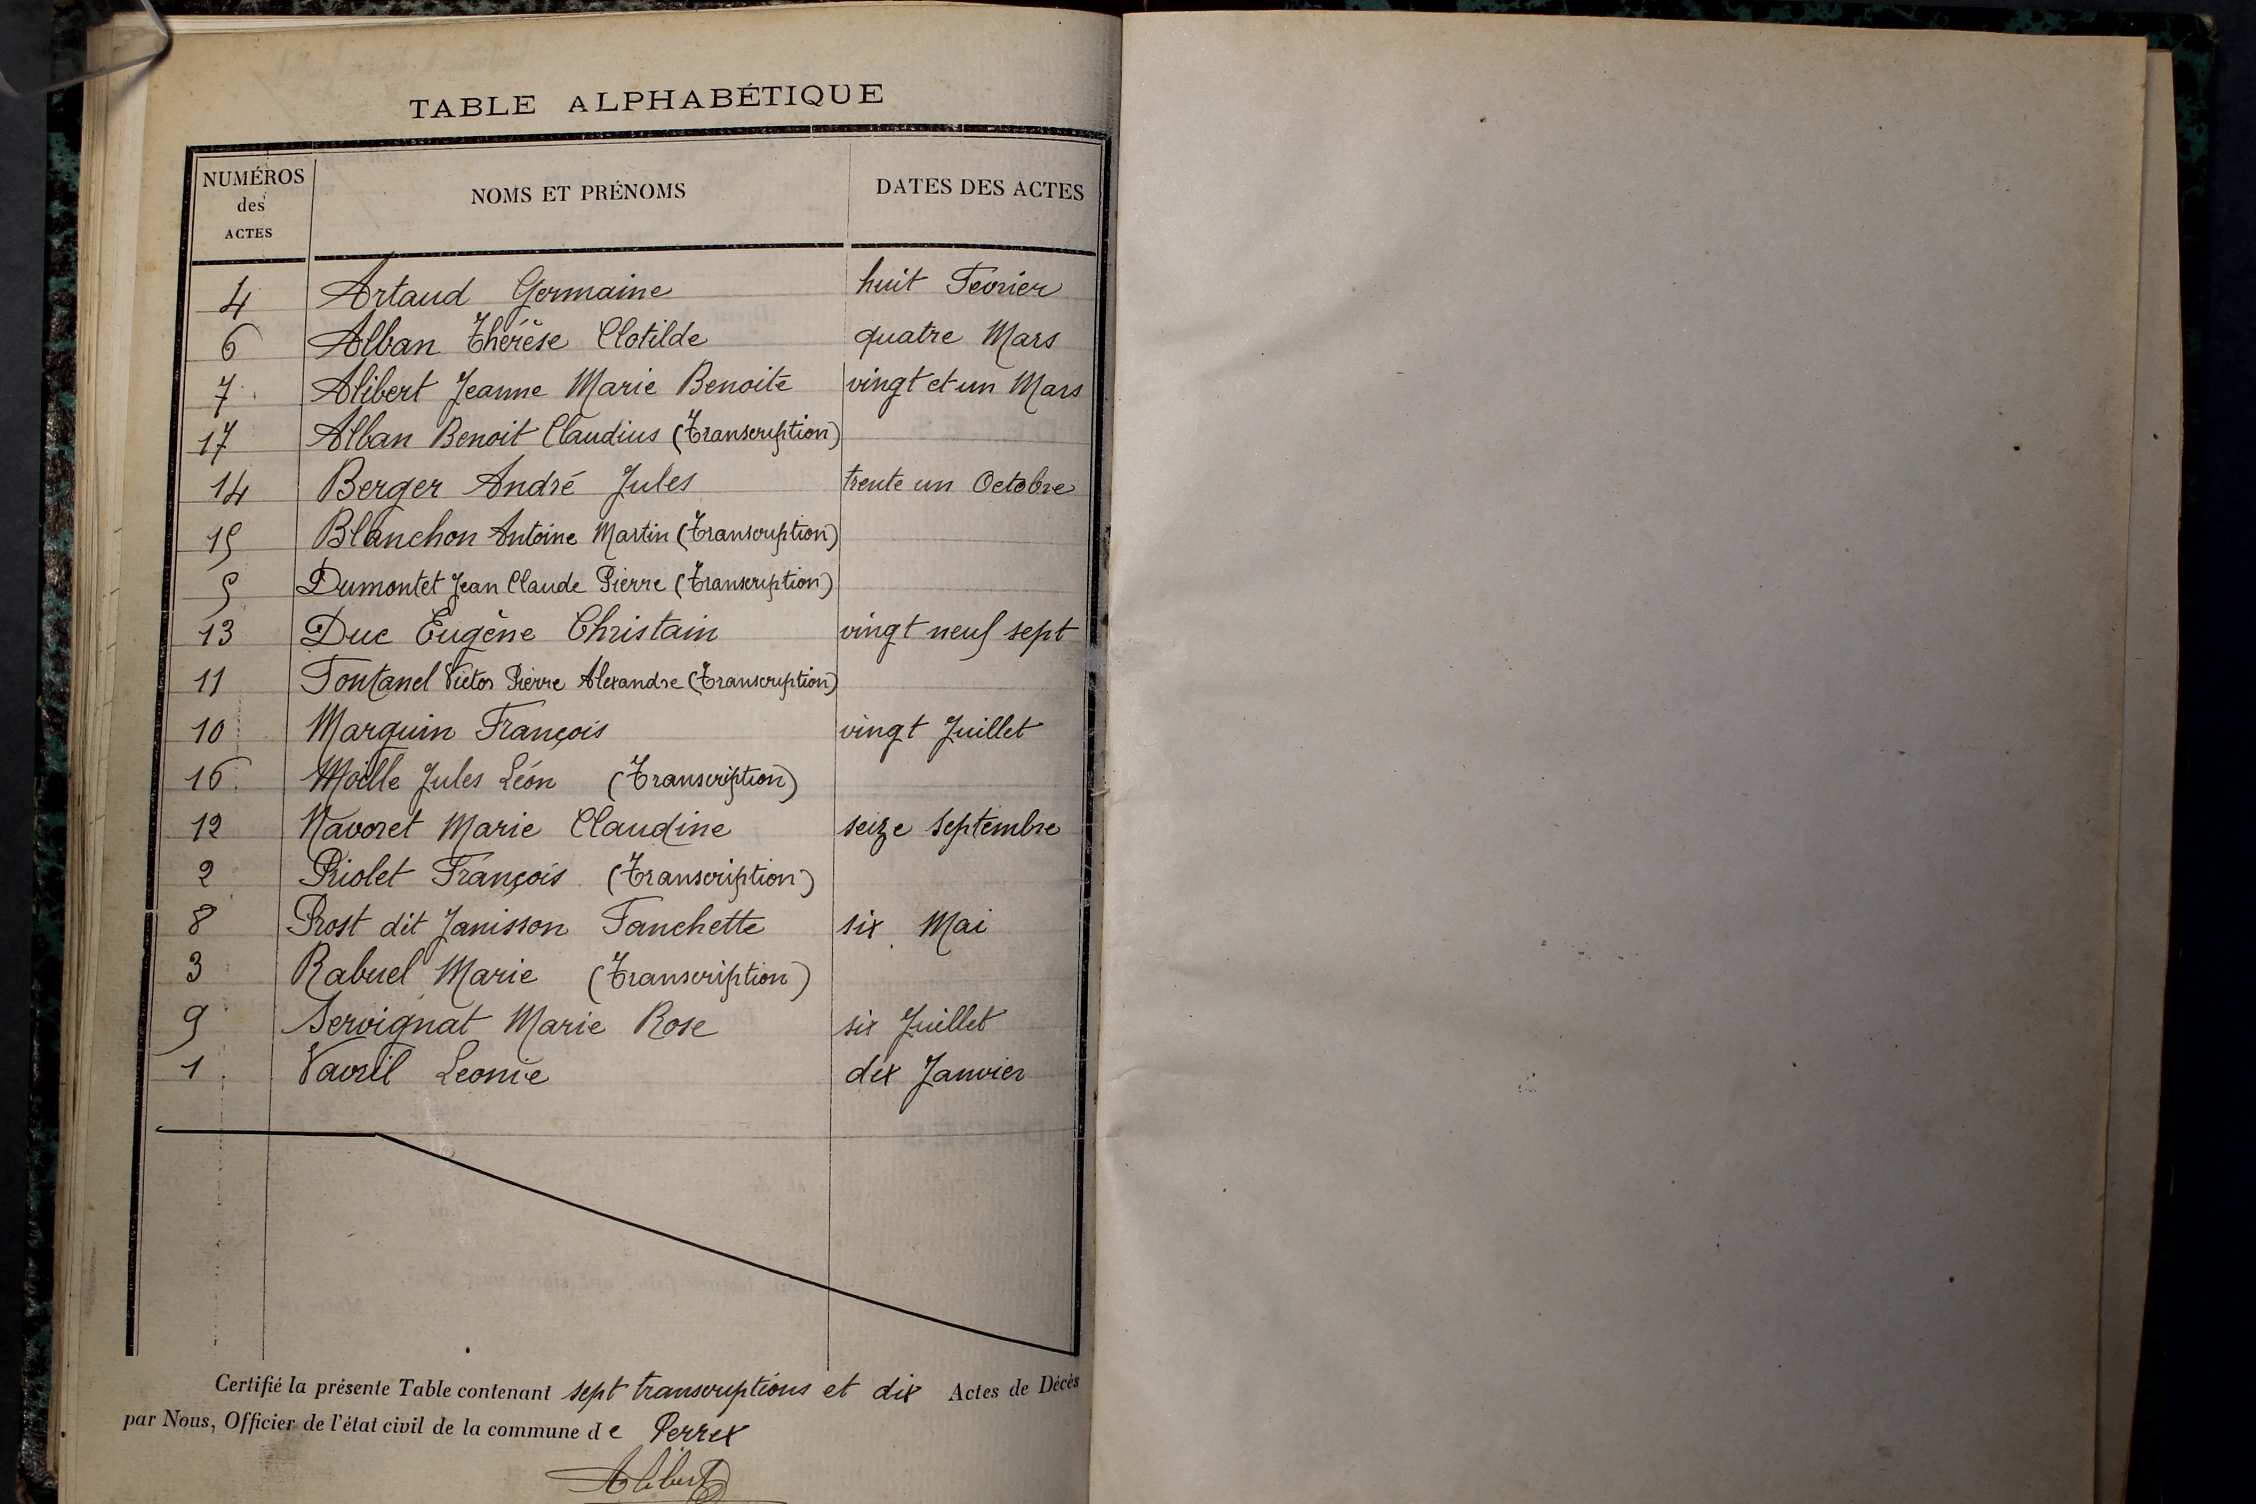 TABLE ALPHABÉTIQUE
NUMÉROS des ACTES NOMS ET PRÉNOMS DATES DES ACTES
4 Artaud Germaine huit Fevrier
6 Alban Thérèse Clotilde quatre Mars
7 Alibert Jeanne Marie Benoite vingt et un Mars
17 Alban Benoit Claudius (Transcription)
14 Berger André Jules trente un Octobre
15 Blanchon Antoine Martin (Transcription)
5 Dumontet Jean Claude Pierre (Transcription)
13 Duc Eugène Christain vingt neuf sept
11 Fontanel Victor Pierre Alexandre (Transcription)
10 Marguin François vingt Juillet
16 Moille Jules Léon (Transcription)
12 Navoret Marie Claudine seize Septembre
2 Riolet François (Transcription)
8 Prost dit Janisson Fanchette six Mai
3 Rabuel Marie (Transcription)
9 Servignat Marie Rose six Juillet
1 Vavril Leonie dix Janvier
Certifié la présente Table contenant sept transcriptions et dix Actes de Décès
par Nous, Officier de l'état civil de la commune de Perrex
Alibert